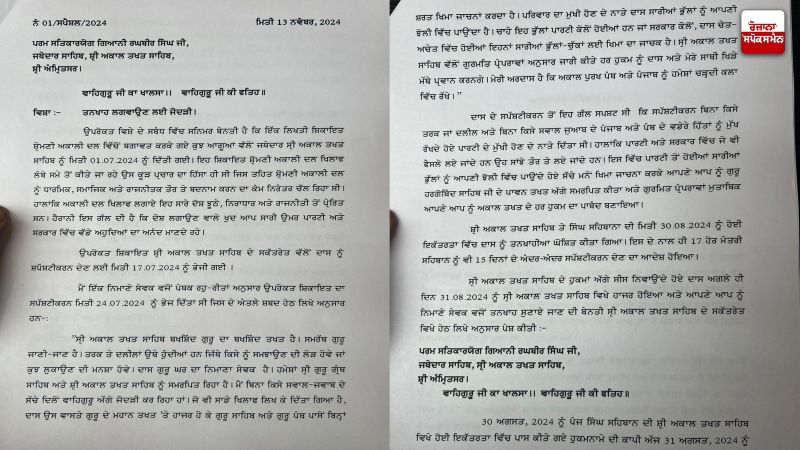 ਨੰ 01/ਸਪੈਸ਼ਲ/2024 ਮਿਤੀ 13 ਨਵੰਬਰ, 2024
ਪਰਮ ਸਤਿਕਾਰਯੋਗ ਗਿਆਨੀ ਰਘਬੀਰ ਸਿੰਘ ਜੀ,
ਜਥੇਦਾਰ ਸਾਹਿਬ, ਸ਼੍ਰੀ ਅਕਾਲ ਤਖਤ ਸਾਹਿਬ,
ਸ਼੍ਰੀ ਅੰਮ੍ਰਿਤਸਰ।
ਵਾਹਿਗੁਰੂ ਜੀ ਕਾ ਖਾਲਸਾ।। ਵਾਹਿਗੁਰੂ ਜੀ ਕੀ ਫਤਿਹ॥
ਵਿਸ਼ਾ :- ਤਨਖਾਹ ਲਗਵਾਉਣ ਲਈ ਜੋਦੜੀ।
ਉਪਰੋਕਤ ਵਿਸ਼ੇ ਦੇ ਸਬੰਧ ਵਿੱਚ ਸਨਿਮਰ ਬੇਨਤੀ ਹੈ ਕਿ ਇੱਕ ਲਿਖਤੀ ਸ਼ਿਕਾਇਤ
ਸ਼੍ਰੋਮਣੀ ਅਕਾਲੀ ਦਲ ਵਿੱਚੋਂ ਬਗਾਵਤ ਕਰਕੇ ਗਏ ਕੁਝ ਆਗੂਆਂ ਵੱਲੋਂ ਜਥੇਦਾਰ ਸ਼੍ਰੀ ਅਕਾਲ ਤਖਤ
ਸਾਹਿਬ ਨੂੰ ਮਿਤੀ 01.07.2024 ਨੂੰ ਦਿੱਤੀ ਗਈ। ਇਹ ਸ਼ਿਕਾਇਤ ਸ਼੍ਰੋਮਣੀ ਅਕਾਲੀ ਦਲ ਖਿਲਾਫ
ਲੰਬੇ ਸਮੇਂ ਤੋਂ ਕੀਤੇ ਜਾ ਰਹੇ ਉਸ ਕੂੜ ਪ੍ਰਚਾਰ ਦਾ ਹਿੱਸਾ ਹੀ ਸੀ ਜਿਸ ਤਹਿਤ ਸ਼੍ਰੋਮਣੀ ਅਕਾਲੀ ਦਲ
ਨੂੰ ਧਾਰਮਿਕ, ਸਮਾਜਿਕ ਅਤੇ ਰਾਜਨੀਤਕ ਤੌਰ ਤੇ ਬਦਨਾਮ ਕਰਨ ਦਾ ਕੰਮ ਨਿਰੰਤਰ ਚੱਲ ਰਿਹਾ ਸੀ।
ਹਾਲਾਂਕਿ ਅਕਾਲੀ ਦਲ ਖਿਲਾਫ ਲਗਾਏ ਇਹ ਸਾਰੇ ਦੋਸ਼ ਝੂਠੇ, ਨਿਰਾਧਾਰ ਅਤੇ ਰਾਜਨੀਤੀ ਤੋਂ ਪ੍ਰੇਰਿਤ
ਸਨ। ਹੈਰਾਨੀ ਇਸ ਗੱਲ ਦੀ ਹੈ ਕਿ ਦੋਸ਼ ਲਗਾਉਣ ਵਾਲੇ ਖੁਦ ਆਪ ਸਾਰੀ ਉਮਰ ਪਾਰਟੀ ਅਤੇ
ਸਰਕਾਰ ਵਿੱਚ ਵੱਡੇ ਅਹੁਦਿਆਂ ਦਾ ਅਨੰਦ ਮਾਣਦੇ ਰਹੇ।
ਉਪਰੋਕਤ ਸ਼ਿਕਾਇਤ ਸ਼੍ਰੀ ਅਕਾਲ ਤਖਤ ਸਾਹਿਬ ਦੇ ਸਕੱਤਰੇਤ ਵੱਲੋਂ ਦਾਸ ਨੂੰ
ਸਪੱਸ਼ਟੀਕਰਨ ਦੇਣ ਲਈ ਮਿਤੀ 17.07.2024 ਨੂੰ ਭੇਜੀ ਗਈ ।
ਮੈਂ ਇੱਕ ਨਿਮਾਣੇ ਸੇਵਕ ਵਜੋਂ ਪੰਥਕ ਰਹੁ-ਰੀਤਾਂ ਅਨੁਸਾਰ ਉਪਰੋਕਤ ਸ਼ਿਕਾਇਤ ਦਾ
ਸਪੱਸ਼ਟੀਕਰਨ ਮਿਤੀ 24.07.2024 ਨੂੰ ਭੇਜ ਦਿੱਤਾ ਸੀ ਜਿਸ ਦੇ ਅੰਤਲੇ ਸ਼ਬਦ ਹੇਠ ਲਿਖੇ ਅਨੁਸਾਰ
ਹਨ-:
"ਸ਼੍ਰੀ ਅਕਾਲ ਤਖਤ ਸਾਹਿਬ ਬਖਸ਼ਿੰਦ ਗੁਰੂ ਦਾ ਬਖਸ਼ਿੰਦ ਤਖਤ ਹੈ। ਸਮਰੱਥ ਗੁਰੂ
ਜਾਣੀ-ਜਾਣ ਹੈ। ਤਰਕ ਤੇ ਦਲੀਲਾਂ ਉੱਥੇ ਹੁੰਦੀਆਂ ਹਨ ਜਿੱਥੇ ਕਿਸੇ ਨੂੰ ਸਮਝਾਉਣ ਦੀ ਲੋੜ ਹੋਵੇ ਜਾਂ
ਕੁਝ ਲੁਕਾਉਣ ਦੀ ਮਨਸ਼ਾ ਹੋਵੇ। ਦਾਸ ਗੁਰੂ ਘਰ ਦਾ ਨਿਮਾਣਾ ਸੇਵਕ ਹੈ। ਹਮੇਸ਼ਾਂ ਸ਼੍ਰੀ ਗੁਰੂ ਗ੍ਰੰਥ
ਸਾਹਿਬ ਅਤੇ ਸ਼੍ਰੀ ਅਕਾਲ ਤਖਤ ਸਾਹਿਬ ਨੂੰ ਸਮਰਪਿਤ ਰਿਹਾ ਹੈ। ਮੈਂ ਬਿਨਾਂ ਕਿਸੇ ਸਵਾਲ-ਜਵਾਬ ਦੇ
ਸੱਚੇ ਦਿਲੋਂ ਵਾਹਿਗੁਰੂ ਅੱਗੇ ਜੋਦੜੀ ਕਰ ਰਿਹਾ ਹਾਂ। ਜੋ ਵੀ ਸਾਡੇ ਖਿਲਾਫ ਲਿਖ ਕੇ ਦਿੱਤਾ ਗਿਆ ਹੈ,
ਦਾਸ ਉਸ ਵਾਸਤੇ ਗੁਰੂ ਦੇ ਮਹਾਨ ਤਖਤ 'ਤੇ ਹਾਜ਼ਰ ਹੋ ਕੇ ਗੁਰੂ ਸਾਹਿਬ ਅਤੇ ਗੁਰੂ ਪੰਥ ਪਾਸੋਂ ਬਿਨ੍ਹਾਂ
ਸ਼ਰਤ ਖਿਮਾ ਜਾਚਨਾ ਕਰਦਾ ਹੈ। ਪਰਿਵਾਰ ਦਾ ਮੁਖੀ ਹੋਣ ਦੇ ਨਾਤੇ ਦਾਸ ਸਾਰੀਆਂ ਭੁੱਲਾਂ ਨੂੰ ਆਪਣੀ
ਝੋਲੀ ਵਿੱਚ ਪਾਉਂਦਾ ਹੈ। ਚਾਹੇ ਇਹ ਭੁੱਲਾਂ ਪਾਰਟੀ ਕੋਲੋਂ ਹੋਈਆਂ ਹਨ ਜਾਂ ਸਰਕਾਰ ਕੋਲੋਂ, ਦਾਸ ਚੇਤ-
ਅਚੇਤ ਵਿੱਚ ਹੋਈਆਂ ਇਹਨਾਂ ਸਾਰੀਆਂ ਭੁੱਲਾਂ-ਚੁੱਕਾਂ ਲਈ ਖਿਮਾ ਦਾ ਜਾਚਕ ਹੈ। ਸ਼੍ਰੀ ਅਕਾਲ ਤਖਤ
ਸਾਹਿਬ ਵੱਲੋਂ ਗੁਰਮਤਿ ਪ੍ਰੰਪਰਾਵਾਂ ਅਨੁਸਾਰ ਜਾਰੀ ਕੀਤੇ ਹਰ ਹੁਕਮ ਨੂੰ ਦਾਸ ਅਤੇ ਮੇਰੇ ਸਾਥੀ ਖਿੜੇ
ਮੱਥੇ ਪ੍ਰਵਾਨ ਕਰਨਗੇ। ਮੇਰੀ ਅਰਦਾਸ ਹੈ ਕਿ ਅਕਾਲ ਪੁਰਖ ਪੰਥ ਅਤੇ ਪੰਜਾਬ ਨੂੰ ਹਮੇਸ਼ਾਂ ਚੜ੍ਹਦੀ ਕਲਾ
ਵਿੱਚ ਰੱਖੇ। "
ਦਾਸ ਦੇ ਸਪੱਸ਼ਟੀਕਰਨ ਤੋਂ ਇਹ ਗੱਲ ਸਪਸ਼ਟ ਸੀ ਕਿ ਸਪੱਸ਼ਟੀਕਰਨ ਬਿਨਾ ਕਿਸੇ
ਤਰਕ ਜਾਂ ਦਲੀਲ ਅਤੇ ਬਿਨਾ ਕਿਸੇ ਸਵਾਲ ਜੁਆਬ ਦੇ ਪੰਜਾਬ ਅਤੇ ਪੰਥ ਦੇ ਵਡੇਰੇ ਹਿੱਤਾਂ ਨੂੰ ਮੁੱਖ
ਰੱਖਦੇ ਹੋਏ ਪਾਰਟੀ ਦੇ ਮੁਖੀ ਹੋਣ ਦੇ ਨਾਤੇ ਦਿੱਤਾ ਸੀ। ਹਾਲਾਂਕਿ ਪਾਰਟੀ ਅਤੇ ਸਰਕਾਰ ਵਿੱਚ ਜੋ ਵੀ
ਫੈਸਲੇ ਲਏ ਜਾਂਦੇ ਹਨ ਉਹ ਸਾਂਝੇ ਤੌਰ ਤੇ ਲਏ ਜਾਂਦੇ ਹਨ। ਇਸ ਵਿੱਚ ਪਾਰਟੀ ਤੋਂ ਹੋਈਆਂ ਸਾਰੀਆਂ
ਭੁੱਲਾਂ ਨੂੰ ਆਪਣੀ ਝੋਲੀ ਵਿੱਚ ਪਾਉਂਦੇ ਹੋਏ ਸੱਚੇ ਮਨੋਂ ਖਿਮਾ ਜਾਚਨਾ ਕਰਕੇ ਆਪਣੇ ਆਪ ਨੂੰ ਗੁਰੂ
ਹਰਗੋਬਿੰਦ ਸਾਹਿਬ ਜੀ ਦੇ ਪਾਵਨ ਤਖਤ ਅੱਗੇ ਸਮਰਪਿਤ ਕੀਤਾ ਅਤੇ ਗੁਰਮਤਿ ਪ੍ਰੰਪਰਾਵਾਂ ਮੁਤਾਬਿਕ
ਆਪਣੇ ਆਪ ਨੂੰ ਅਕਾਲ ਤਖਤ ਦੇ ਹਰ ਹੁਕਮ ਦਾ ਪਾਬੰਦ ਬਣਾਇਆ।
ਸ਼੍ਰੀ ਅਕਾਲ ਤਖਤ ਸਾਹਿਬ ਤੇ ਸਿੰਘ ਸਾਹਿਬਾਨਾਂ ਦੀ ਮਿਤੀ 30.08.2024 ਨੂੰ ਹੋਈ
ਇਕੱਤਰਤਾ ਵਿੱਚ ਦਾਸ ਨੂੰ ਤਨਖਾਹੀਆ ਘੋਸ਼ਿਤ ਕੀਤਾ ਗਿਆ। ਇਸ ਦੇ ਨਾਲ ਹੀ 17 ਹੋਰ ਮੰਤਰੀ
ਸਹਿਬਾਨ ਨੂੰ ਵੀ 15 ਦਿਨਾਂ ਦੇ ਅੰਦਰ-ਅੰਦਰ ਸਪੱਸ਼ਟੀਕਰਨ ਦੇਣ ਦਾ ਆਦੇਸ਼ ਹੋਇਆ।
ਸ਼੍ਰੀ ਅਕਾਲ ਤਖਤ ਸਾਹਿਬ ਦੇ ਹੁਕਮਾਂ ਅੱਗੇ ਸੀਸ ਨਿਵਾਉਂਦੇ ਹੋਏ ਦਾਸ ਅਗਲੇ ਹੀ
ਦਿਨ 31.08.2024 ਨੂੰ ਸ਼੍ਰੀ ਅਕਾਲ ਤਖਤ ਸਾਹਿਬ ਵਿਖੇ ਹਾਜਰ ਹੋਇਆ ਅਤੇ ਆਪਣੇ ਆਪ ਨੂੰ
ਨਿਮਾਣੇ ਸੇਵਕ ਵਜੋਂ ਤਨਖਾਹ ਸੁਣਾਏ ਜਾਣ ਦੀ ਬੇਨਤੀ ਸ਼੍ਰੀ ਅਕਾਲ ਤਖਤ ਸਾਹਿਬ ਦੇ ਸਕੱਤਰੇਤ
ਵਿਖੇ ਹੇਠ ਲਿਖੇ ਅਨੁਸਾਰ ਪੇਸ਼ ਕੀਤੀ :-
ਪਰਮ ਸਤਿਕਾਰਯੋਗ ਗਿਆਨੀ ਰਘਬੀਰ ਸਿੰਘ ਜੀ,
ਜਥੇਦਾਰ ਸਾਹਿਬ, ਸ਼੍ਰੀ ਅਕਾਲ ਤਖਤ ਸਾਹਿਬ,
ਸ਼੍ਰੀ ਅੰਮ੍ਰਿਤਸਰ।
ਵਾਹਿਗੁਰੂ ਜੀ ਕਾ ਖਾਲਸਾ।। ਵਾਹਿਗੁਰੂ ਜੀ ਕੀ ਫਤਿਹ॥
30 ਅਗਸਤ, 2024 ਨੂੰ ਪੰਜ ਸਿੰਘ ਸਹਿਬਾਨ ਦੀ ਸ਼੍ਰੀ ਅਕਾਲ ਤਖਤ ਸਾਹਿਬ
ਵਿਖੇ ਹੋਈ ਇਕੱਤਰਤਾ ਵਿੱਚ ਪਾਸ ਕੀਤੇ ਗਏ ਹੁਕਮਨਾਮੇ ਦੀ ਕਾਪੀ ਅੱਜ 31 ਅਗਸਤ, 2024 ਨੂੰ
ਰੋਜ਼ਾਨਾ
ਸਪੋਕਸਮੈਨ